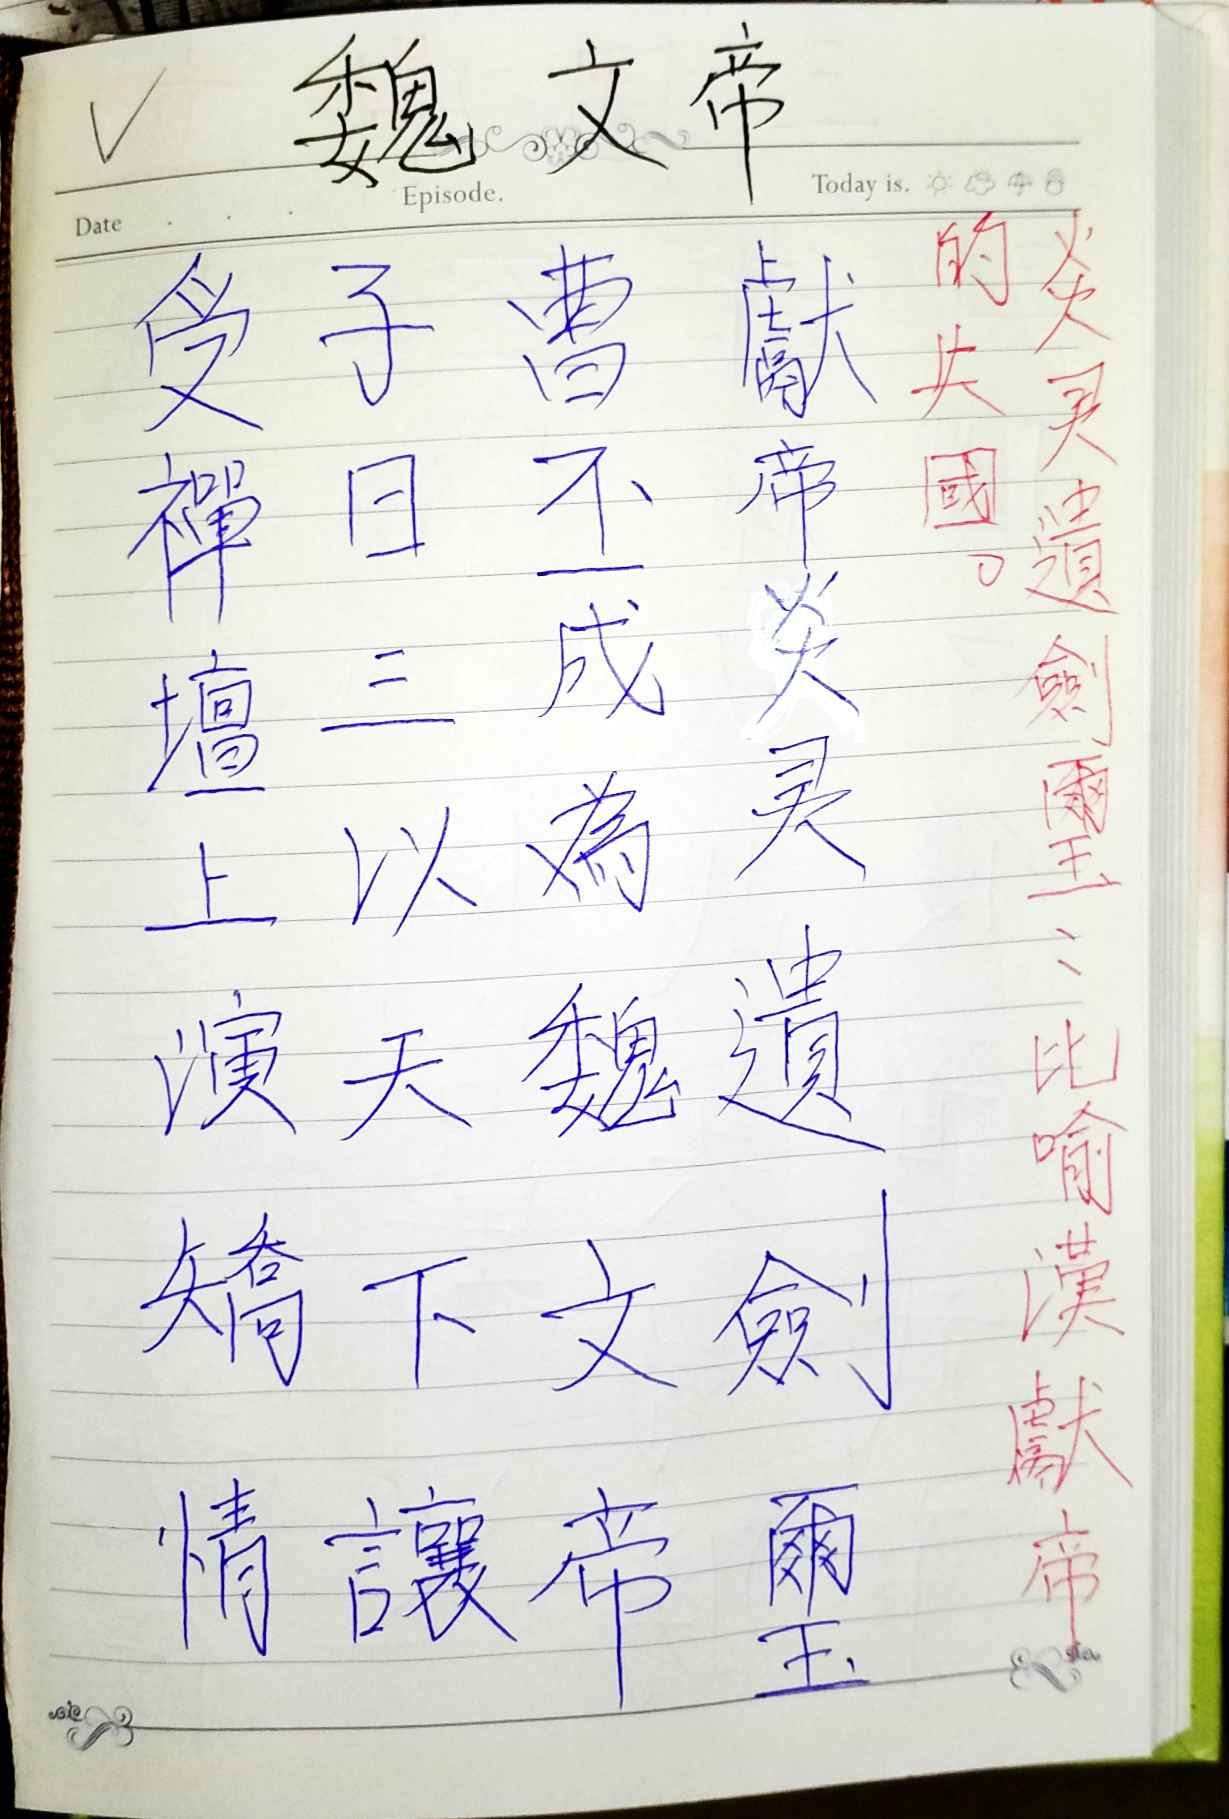 魏文帝
Date . . .
Episode.
Today is.
炎灵遺劍璽：比喻漢獻帝
的國。
獻帝炎灵遺劍璽
曹丕成為魏文帝
子日三以天下讓
受禪壇上演矯情